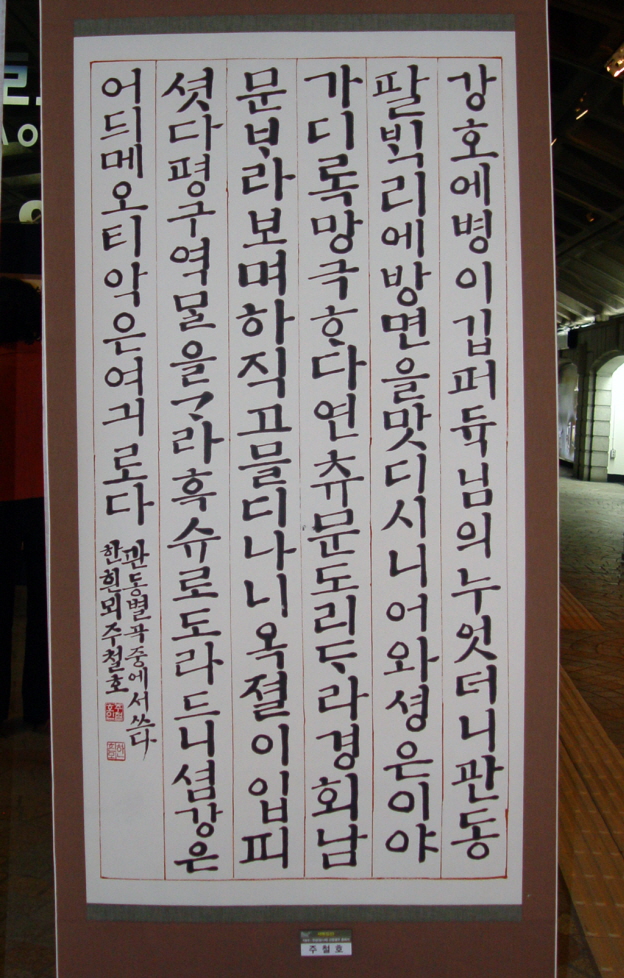 강호에병이깁퍼듁님의누엇더니관동
팔ᄇᆡᆨ리에방면을맛디시니어와셩은이야
가디록망극ᄒᆞ다연츄문도리ᄃᆞ라경회남
문ᄇᆞ라보며하직고믈디나니옥졀이압피
셧다평구역ᄆᆞᆯ을ᄀᆞ라흑슈로도라드니셤강은
어듸메오티악은여긔로다
관동별곡중에서쓰다
한흰뫼주철호
주철호